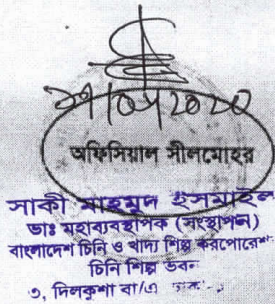 অফিসিয়াল সীলমোহর
সাকী মাহমুদ ইসমাইল
ডাঃ মহাব্যবস্থাপক (সংস্থাপন)
বাংলাদেশ চিনি ও খাদ্য শিল্প করপোরেশ
চিনি শিল্প ভবন
৩, দিলকুশা বা/এ